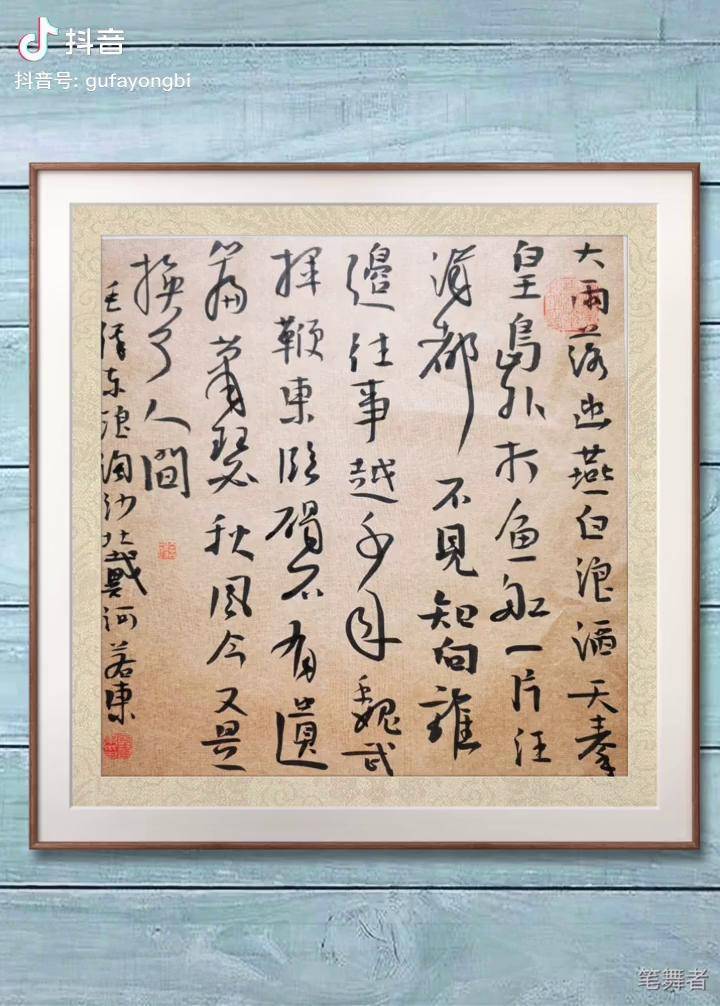 抖音
抖音号: gufayongbi
大雨落幽燕白浪滔天秦
皇島外打魚船一片汪
洋都不見知向誰
邊往事越千年魏武
揮鞭東臨碣石有遺
篇蕭瑟秋風今又是
換了人間
毛澤東浪淘沙北戴河若東
笔舞者